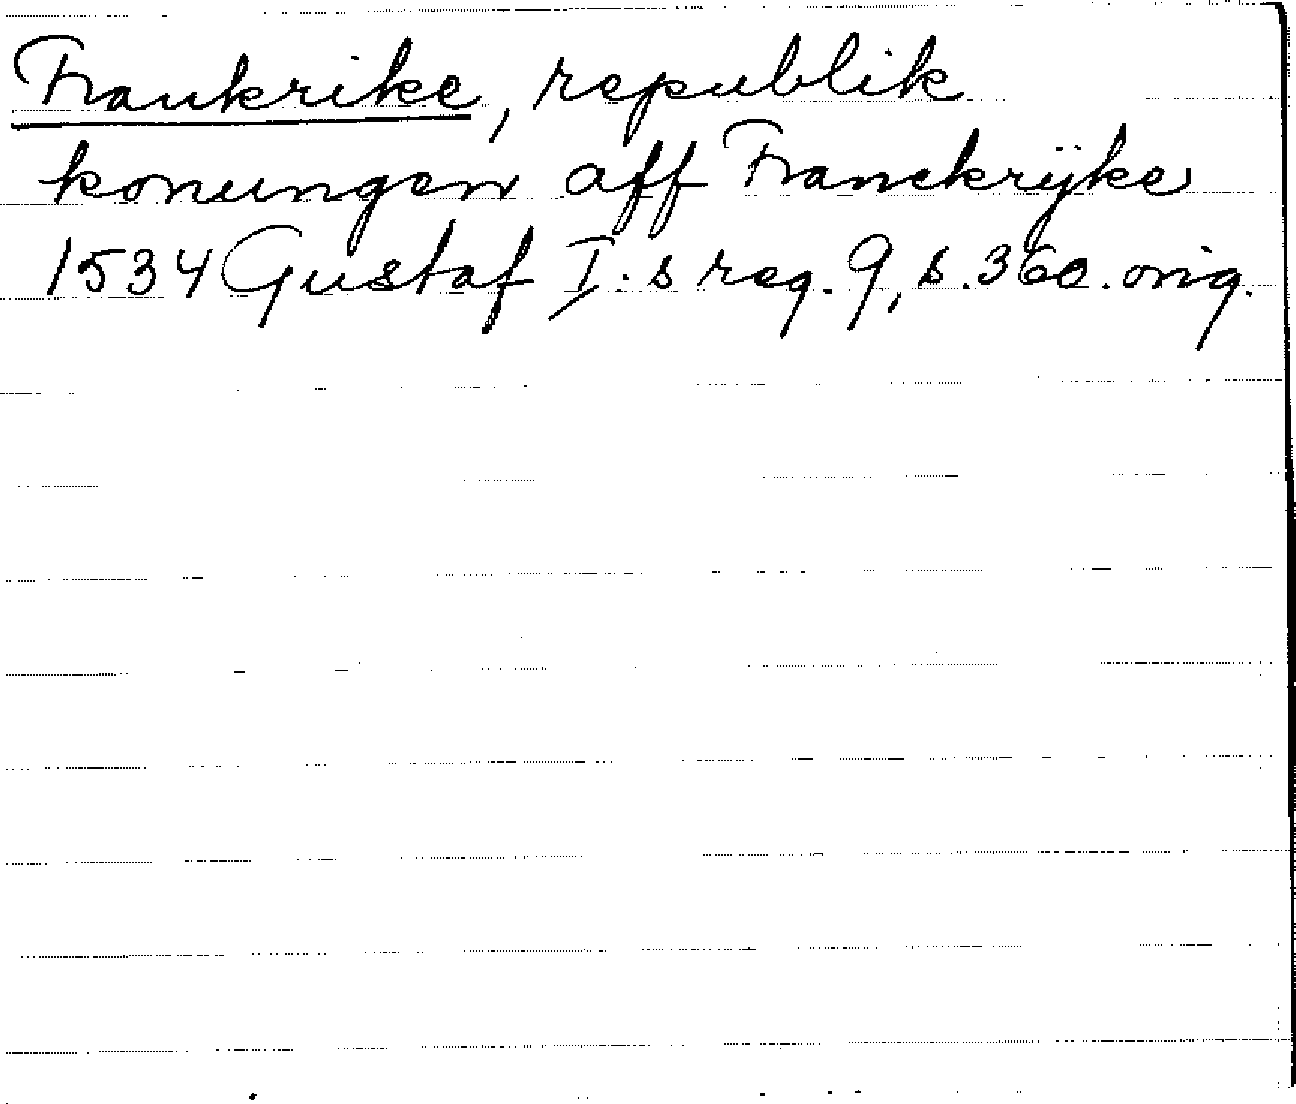 Frankrike, republik
konungen aff Franckrijke
1534 Gustaf I:s reg. 9, s. 360. orig.